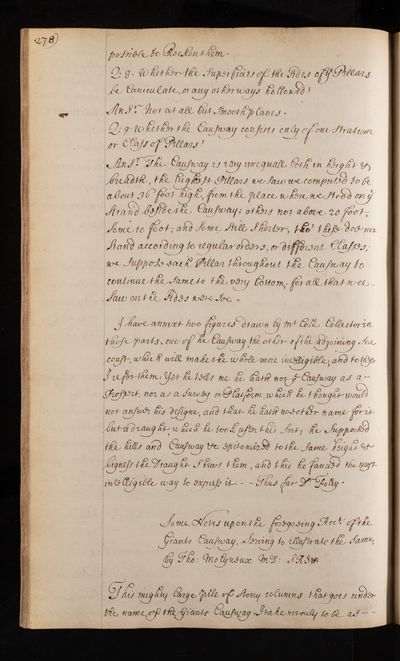 278)
possible be Reckon them.
Q: 8. Whether the superficies of the sides of ye Pillars
be Canaculate, or any other ways hollowed?
Ansr. Not at all but smooth planes.
Q: 9. Whether the Causway consists only of one stratum
or Class of Pillars?
Ansr. The Causway is very inequall both in height &
breadth, the highest Pillars we saw we computed to be
about 36 foot high, from the place where we stood on ye
strand beside the Causway; others not above 20 foot,
some 10 foot, and some still shorter, tho' these does not
stand according to regular orders, or different Classes,
we suppose each Pillar throughout the Causway to
continue the same to the very bottom, for all that wee
saw on the sides were soe.
I have annext two figures drawn by mr Cole Collector in
those parts, one of the Causway, the other of the adjoining sea
coast, which will make the whole more intelligible, and to these
I refer them. Yet he tells me he hath not ye Causway as a
Prospect, nor as a survey or Platform, which he thought would
not answer his designe, and that he hath no other name for it
but a draught which he took after this sort, he supposed
the hills and Causway &c epitomized to the same height &
bigness the Draught shews them, and this he fancied the most
intelligible way to express it - - - Thus far Dr Foley.
Some Notes upon the foregoing Acct. of the
Giants Causway, serving to illustrate the same,
by Tho: Molyneux M:D:
This mighty large pille of stony columns that goes under
the name of the Giants Causway I take not only to be as